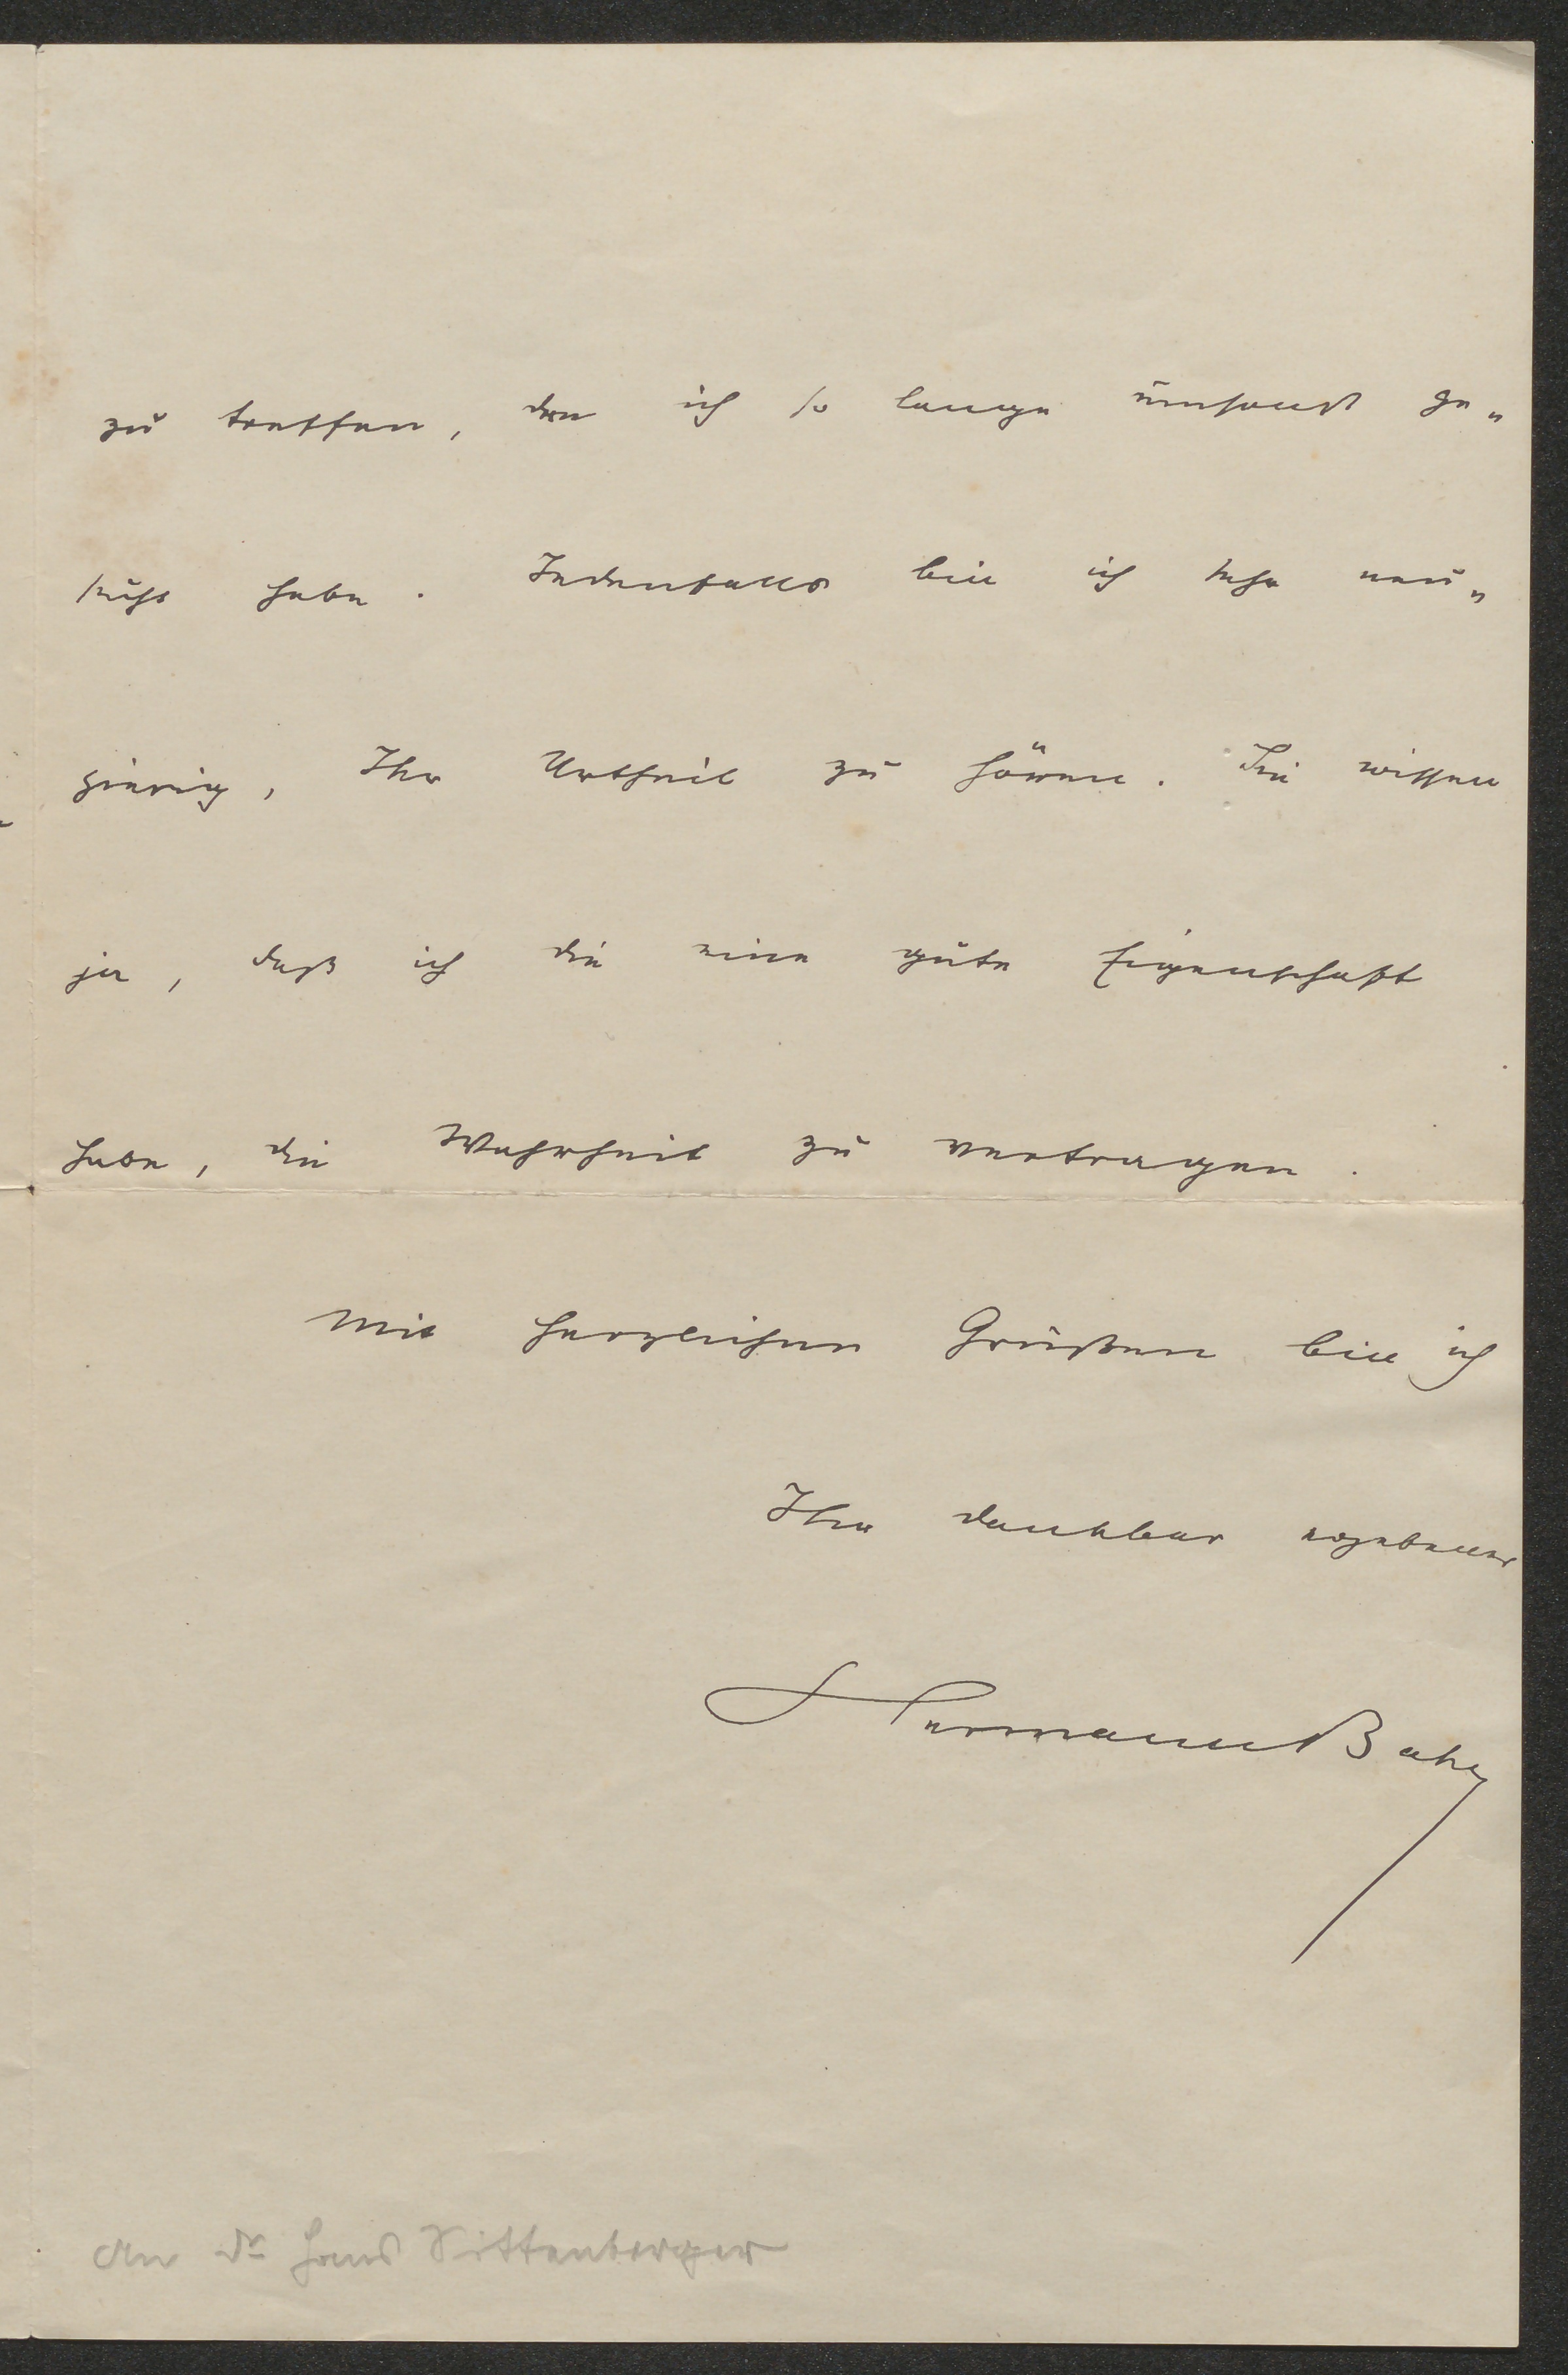 zu treffen, den ich so lange umsonst ge„
sucht habe. Jedenfalls bin ich sehr neu„
gierig, Ihr Urtheil zu hören. Sie wissen
ja, daß ich die eine gute Eigenschaft
habe, die Wahrheit zu vertragen.
Mit herzlichen Grüßen bin ich
Ihr dankbar ergebener
Hermann Bahr
An Dr Hans Sittenberger